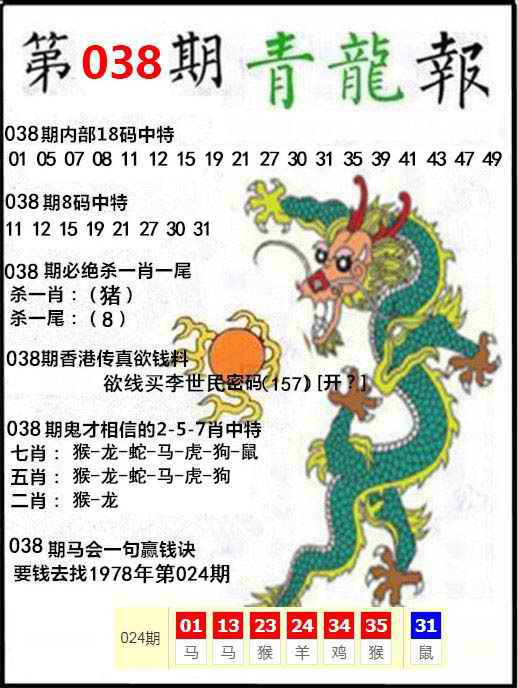 第038期青龍報
038期内部18码中特
01 05 07 08 11 12 15 19 21 27 30 31 35 39 41 43 47 49
038期8码中特
11 12 15 19 21 27 30 31
038 期必绝杀一肖一尾
杀一肖：（猪）
杀一尾：（8）
038期香港传真欲钱料
欲线买李世民密码(157) [开？]
038期鬼才相信的2-5-7肖中特
七肖： 猴-龙-蛇-马-虎-狗-鼠
五肖： 猴-龙-蛇-马-虎-狗
二肖： 猴-龙
038 期马会一句赢钱诀
要钱去找1978年第024期
024期 01 13 23 24 34 35 31
马 马 猴 羊 鸡 猴 鼠